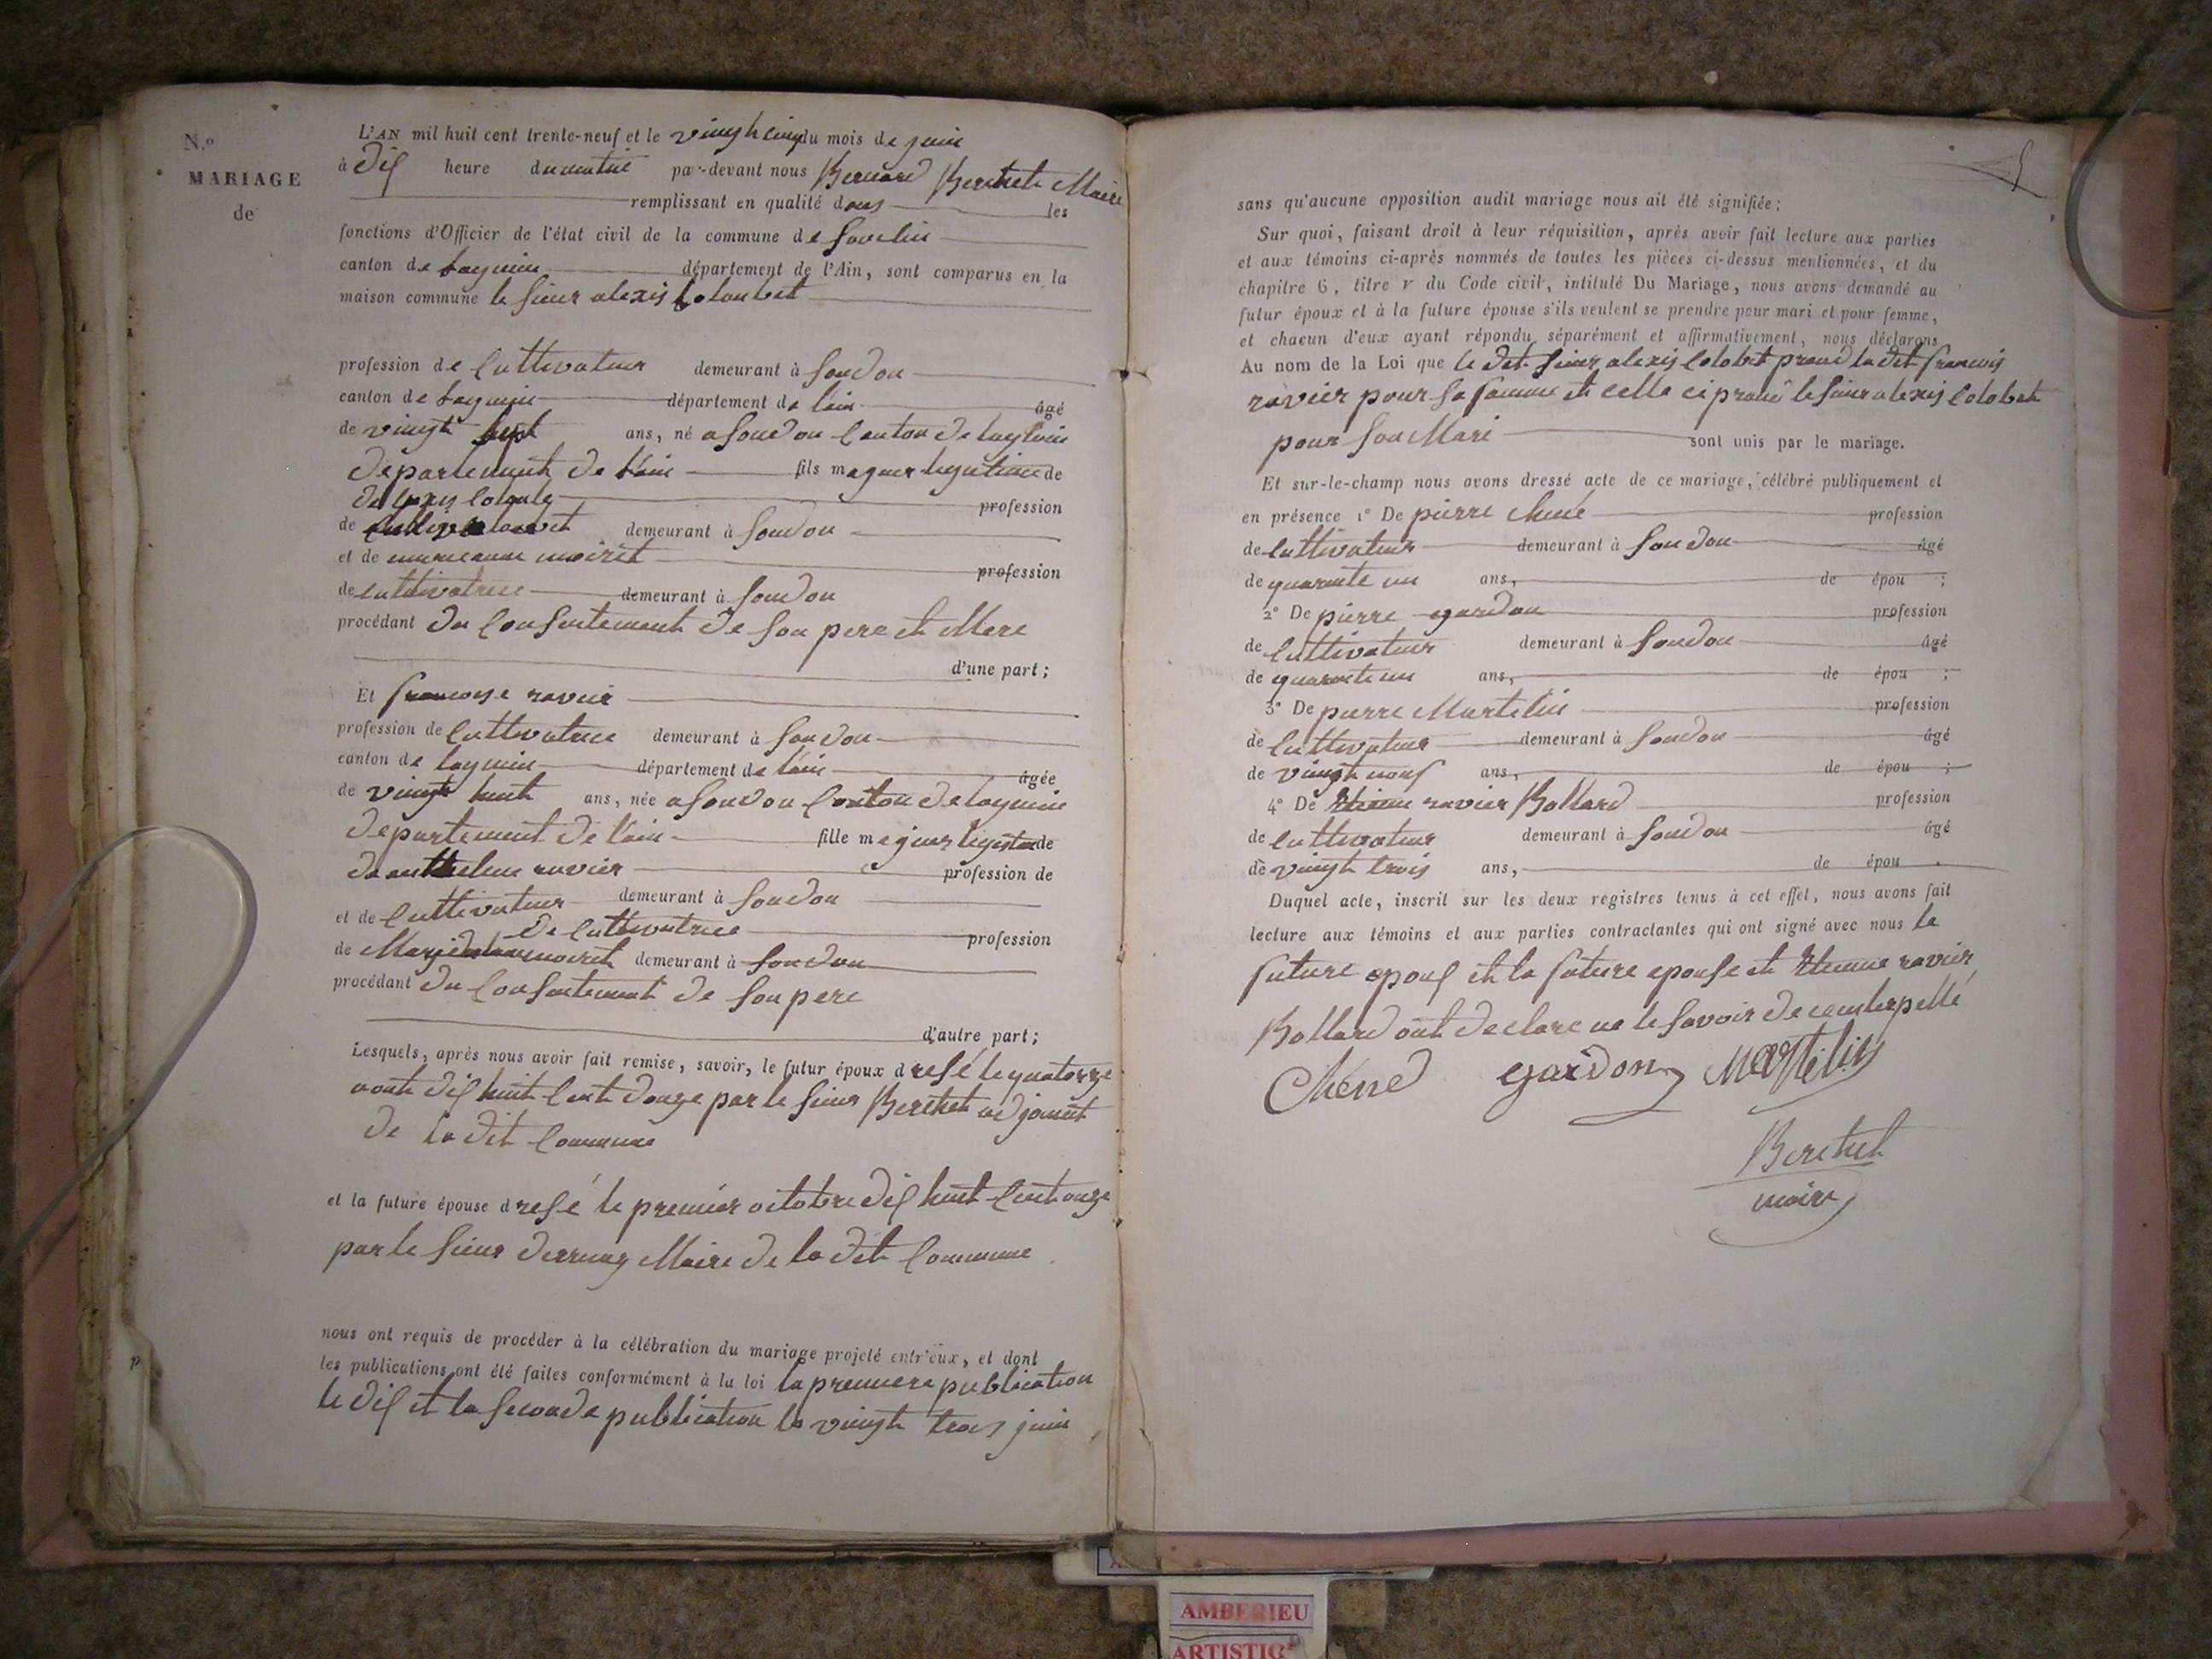 N.º
MARIAGE
de
L'AN mil huit cent trente-neuf et le vingt cinq du mois de juin
à dix heure du matin par-devant nous Bernard Berthet Maire
remplissant en qualité dous les
fonctions d'Officier de l'état civil de la commune de
canton de Lagnieu département de l'Ain, sont comparus en la
maison commune le sieur alexis Coloubet
profession de Cultivateur demeurant à Soudon
canton de Lagnieu département de l'ain âgé
de vingt sept ans, né a Soudon Canton de lagnieu
département de l'ain fils majeur legitime de
profession
de demeurant à Soudon
et de moiret profession
de cultivatrice demeurant à Soudon
procédant du Consentement de son pere et Mere
d'une part;
Et francoise ravier
profession de Cultivatrice demeurant à Soudon
canton de lagnieu département de l'ain âgée
de vingt huit ans, née a Soudon Canton de lagnieu
département de l'ain fille majeur de
de anthelme ravier profession de
et de Cultivateur demeurant à Soudon
de Cultivatrice profession
de moiret demeurant à Soudon
procédant du Consentement de son pere
d'autre part;
Lesquels, après nous avoir fait remise, savoir, le futur époux dresé le quatorze
aout dix huit Cent douze par le sieur Berthet adjoint
de la dit Commune
et la future épouse dresé le premier octobre dix huit Cent onze
par le sieur Maire de la dit Commune
nous ont requis de procéder à la célébration du mariage projeté entr'eux, et dont
les publications ont été faites conformément à la loi la premiere publication
le dix et la seconde publication le vingt trois juin
sans qu'aucune opposition audit mariage nous ait été signifiée;
Sur quoi, faisant droit à leur réquisition, après avoir fait lecture aux parties
et aux témoins ci-après nommés de toutes les pièces ci-dessus mentionnées, et du
chapitre 6, titre V du Code civil, intitulé Du Mariage, nous avons demandé au
futur époux et à la future épouse s'ils veulent se prendre pour mari et pour femme,
et chacun d'eux ayant répondu séparément et affirmativement, nous déclarons
Au nom de la Loi que le dit sieur alexis Colobet prand la dit francois
ravier pour sa famme et celle ci prand le sieur alexis Colobet
pour son Mari sont unis par le mariage.
Et sur-le-champ nous avons dressé acte de ce mariage, célébré publiquement et
en présence 1º De pierre chené profession
de Cultivateur demeurant à Soudon âgé
de quarante un ans, de épou ;
2º De pierre gardon profession
de Cultivateur demeurant à Soudon âgé
de quarante un ans, de épou ;
3º De pierre Martelin profession
de Cultivateur demeurant à Soudon âgé
de vingt nouf ans, de épou ;
4º De Etienne ravier Bollard profession
de Cultivateur demeurant à Soudon âgé
de vingt trois ans, de épou .
Duquel acte, inscrit sur les deux registres tenus à cet effet, nous avons fait
lecture aux témoins et aux parties contractantes qui ont signé avec nous le
future epoux et la future epouse et Etienne ravier
Bollard ont declare ne le savoir de ce interpellé
Chéné gardon Martelin
Berthet
maire
AMBERIEU
ARTISTIC